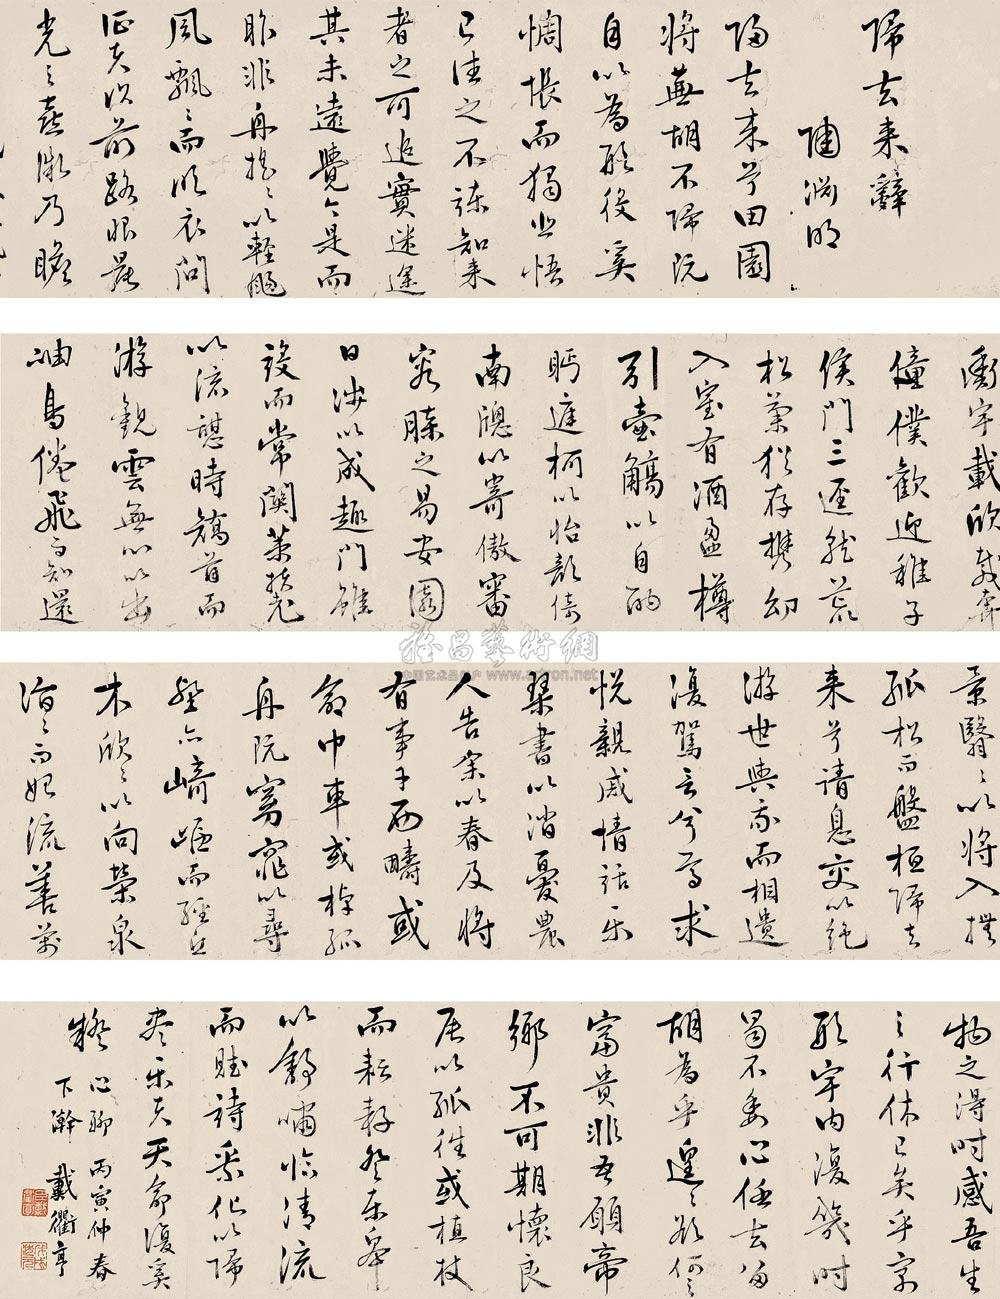 歸去来辭
陶淵明
歸去来兮田園
将蕪胡不歸既
自以為形役奚
惆悵而獨悲悟
已往之不諫知来
者之可追實迷途
其未遠覺今是而
昨非舟摇〻以輕颺
風飄〻而吹衣問
征夫以前路恨晨
光之熹微乃瞻
衡宇載欣載奔
僮僕歡迎稚子
候門三逕就荒
松菊猶存携幼
入室有酒盈樽
引壺觴以自酌
眄庭柯以怡顔倚
南牕以寄傲審
容膝之易安園
日涉以成趣門雖
設而常關策扶老
以流憩時矯首而
游觀雲無心以出
岫鳥倦飛而知還
景翳〻以将入撫
孤松而盤桓歸去
来兮請息交以絶
游世與我而相遺
復駕言兮焉求
悦親戚情話樂
琴書以消憂農
人告余以春及将
有事于西疇或
命巾車或棹孤
舟既窈窕以尋
壑亦崎嶇而經丘
木欣〻以向榮泉
涓〻而始流善萬
物之得時感吾生
之行休已矣乎寓
形宇内復幾時
曷不委心任去留
胡為乎遑〻欲何之
富貴非吾願帝
鄉不可期懷良
辰以孤往或植杖
而耘耔登東皋
以舒嘯臨清流
而賦詩乘化以歸
盡樂夫天命復奚
疑 心聊 丙寅仲春
下瀚 戴衢亨